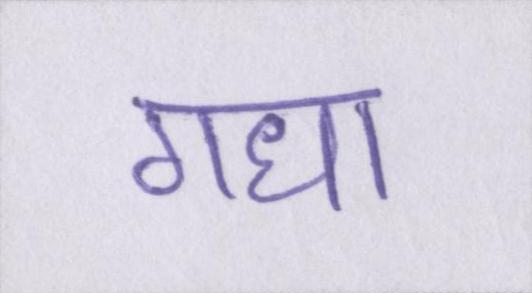 गधा